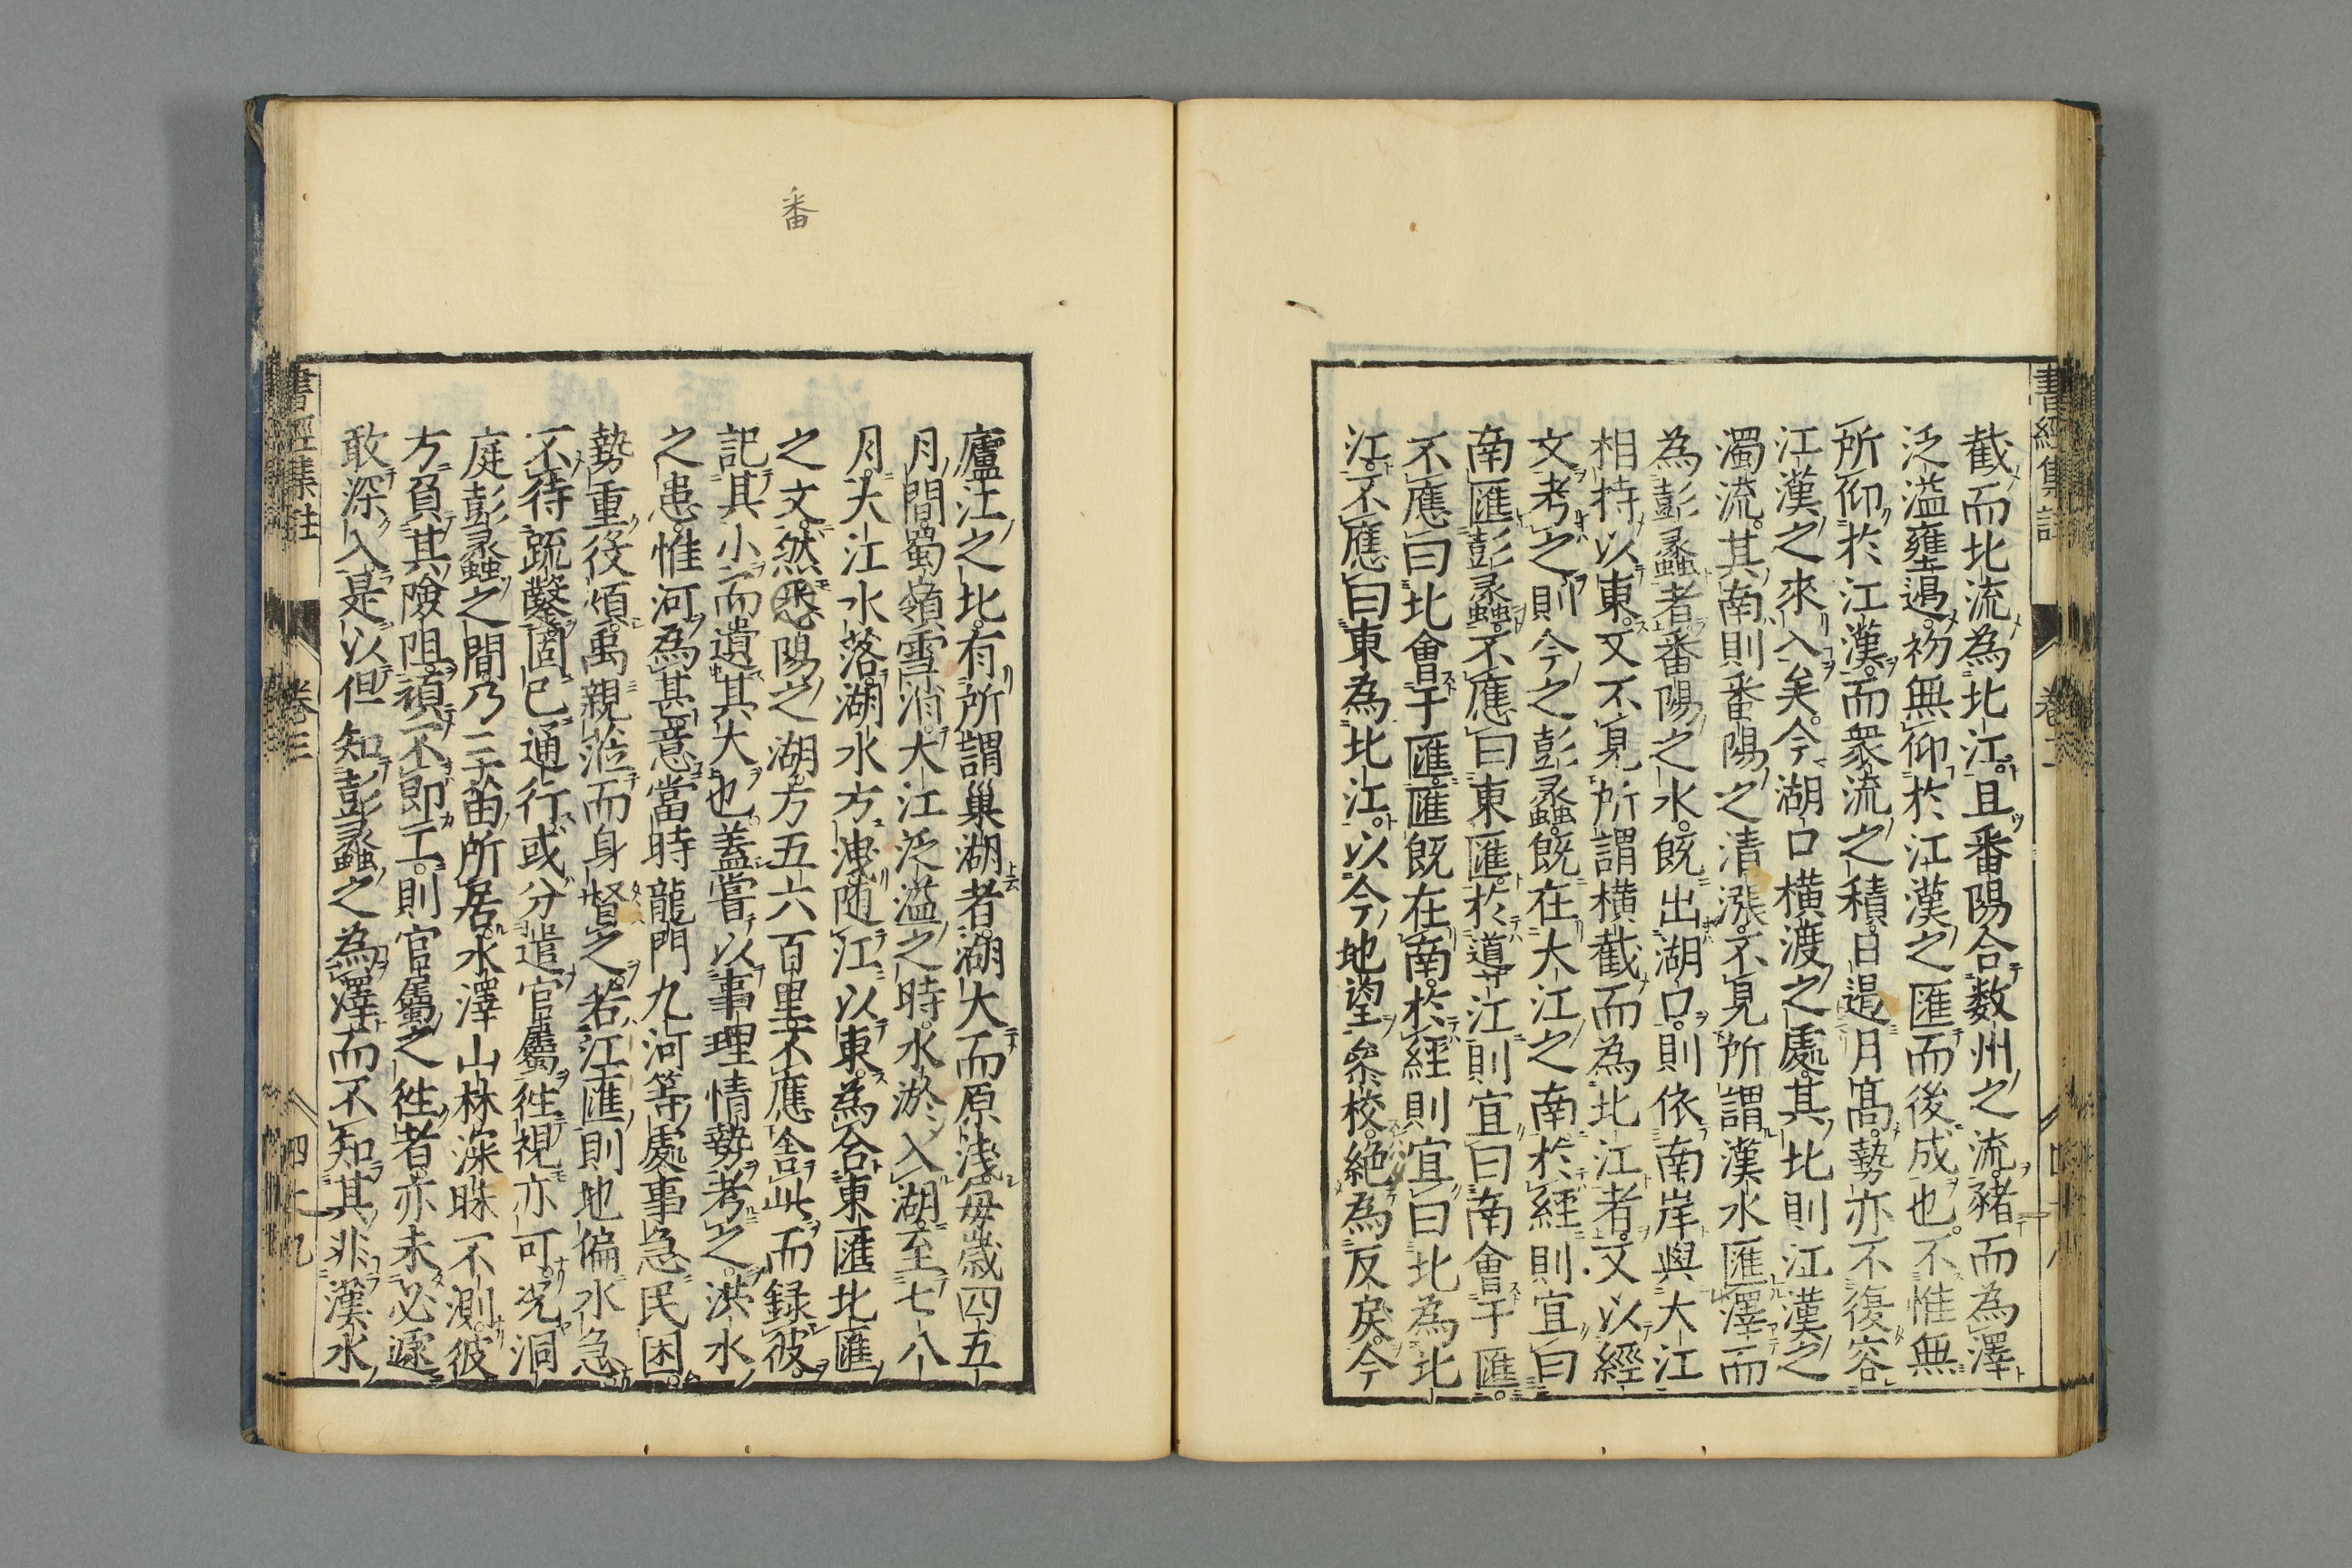 書經集註 卷三
截而北流為北江且番陽合数州之流豬而為澤
泛溢壅遏初無仰於江漢之匯而後成也不惟無
所仰於江漢而衆流之積日遏月髙勢亦不復容
江漢之來入矣今湖口横渡之處其北則江漢之
濁流其南則番陽之清漲不見所謂漢水匯澤而
為彭蠡者番陽之水既出湖口則依南岸與大江
相持以東又不見所謂横截而為北江者又以經
文考之則今之彭蠡既在大江之南於經則宜曰
南匯彭蠡不應曰東匯於導江則宜曰南會于匯
不應曰北會于匯匯既在南於經則宜曰北為北
江不應曰東為北江以今地望參校絶為反戾今
番
廬江之北有所謂巢湖者湖大而原淺每歳四五
月間蜀嶺雪消大江泛溢之時水淤入湖至七八
月大江水落湖水方洩随江以東為合東匯北匯
之文然番陽之湖方五六百里不應舍此而録彼
記其小而遺其大也蓋嘗以事理情勢考之洪水
之患惟河為甚意當時龍門九河等處事急民困
勢重役煩禹親蒞而身督之若江匯則地偏水急
不待疏鑿固已通行或分遣官屬徃視亦可况洞
庭彭蠡之間乃三苗所居水澤山林深昧不測彼
方負其險阻頑不即工則官屬之徃者亦未必遽
敢深入是以但知彭蠡之為澤而不知其非漢水
書經集註 卷三 四十九